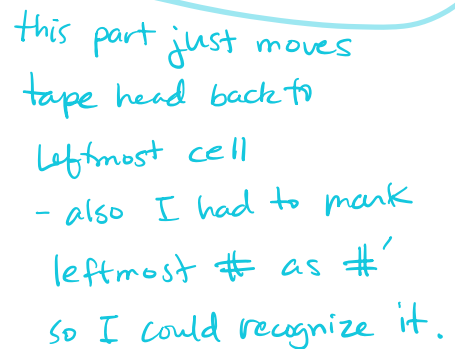 this part just moves
tape head back to
leftmost cell
- also I had to mark
leftmost # as #'
so I could recognize it.